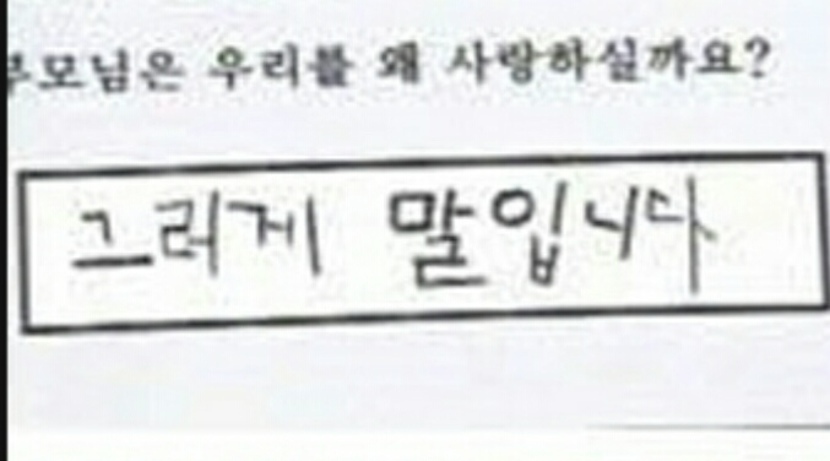 부모님은 우리를 왜 사랑하실까요?
그러게 말입니다